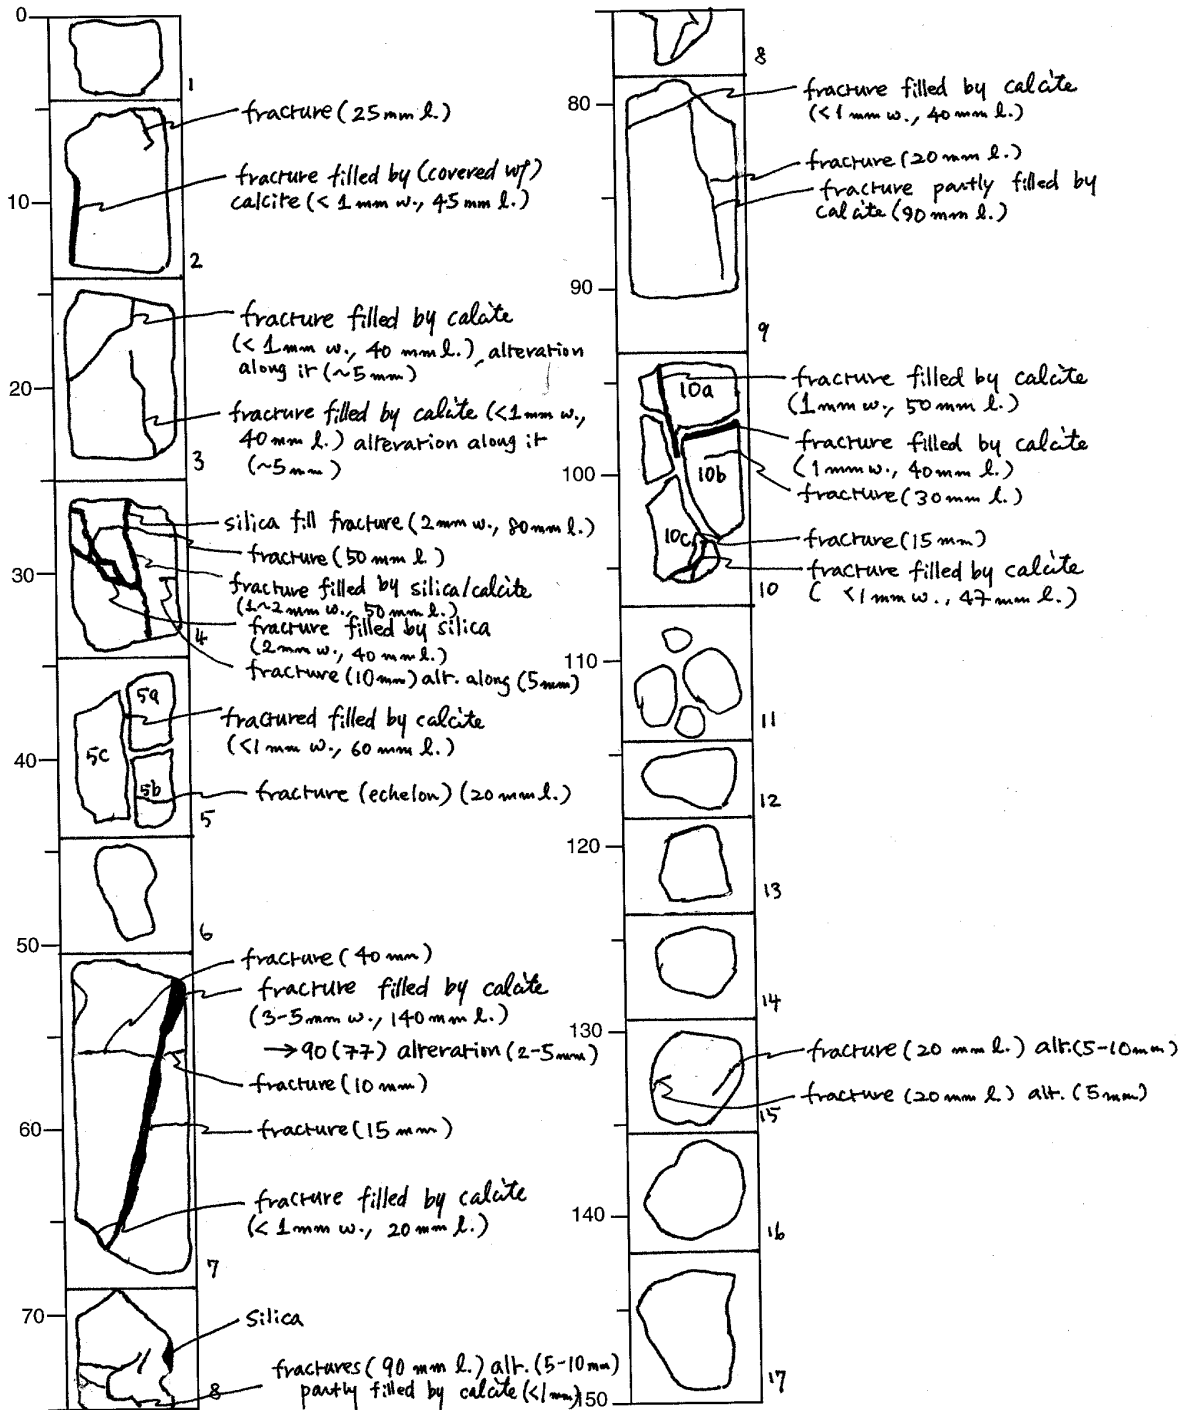 0
1
fracture (25mm l.)
fracture filled by (covered w/)
calcite (< 1 mm w., 45 mm l.)
10
2
fracture filled by calcite
(< 1mm w., 40 mm l.), alteration
along it (~5 mm)
20
fracture filled by calcite (<1mm w.,
40 mm l.) alteration along it
(~5 mm)
3
silica fill fracture (2mm w., 80mm l.)
fracture (50 mm l.)
30
fracture filled by silica/calcite
(1~2 mm w., 50 mm l.)
fracture filled by silica
(2mm w., 40 mm l.)
4
fracture (10mm) alt. along (5mm)
5a
fractured filled by calcite
(<1 mm w., 60 mm l.)
5c
40
5b
fracture (echelon) (20 mm l.)
5
6
50
fracture (40 mm)
fracture filled by calcite
(3-5mm w., 140 mm l.)
→ 90 (77) alteration (2-5mm)
fracture (10 mm)
60
fracture (15 mm)
fracture filled by calcite
(< 1mm w., 20 mm l.)
7
70
silica
fractures (90 mm l.) alt. (5-10mm)
partly filled by calcite (<1mm)
8
8
80
fracture filled by calcite
(<1 mm w., 40 mm l.)
fracture (20 mm l.)
fracture partly filled by
calcite (90 mm l.)
90
9
10a
fracture filled by calcite
(1mm w., 50 mm l.)
fracture filled by calcite
(1mm w., 40mm l.)
100
10b
fracture (30 mm l.)
10c
fracture (15 mm)
fracture filled by calcite
( <1mm w., 47 mm l.)
10
110
11
12
120
13
14
130
fracture (20 mm l.) alt. (5-10mm)
fracture (20 mm l.) alt. (5 mm)
15
140
16
17
150